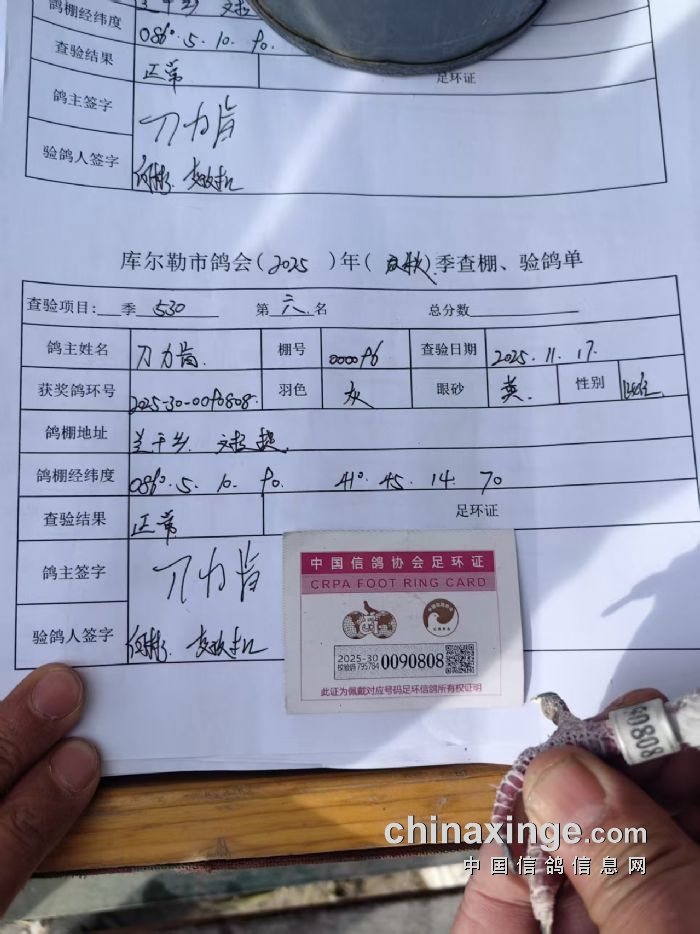 鸽棚经纬度 086°. 5. 10. 90.
查验结果 正常 足环证
鸽主签字 刀力肯
验鸽人签字
库尔勒市鸽会(2025)年(双秋)季查棚、验鸽单
查验项目: 季 530 第 六 名 总分数
鸽主姓名 刀力肯. 棚号 000096 查验日期 2025. 11. 17.
获奖鸽环号 2025-30-0090808. 羽色 灰 眼砂 黄. 性别 雄
鸽棚地址 兰干乡.
鸽棚经纬度 086°. 5. 10. 90. 41°. 45. 14. 70
查验结果 正常 足环证
鸽主签字 刀力肯
验鸽人签字
中国信鸽协会足环证
CRPA FOOT RING CARD
2025-30
校验码 795784
0090808
此证为佩戴对应号码足环信鸽所有权证明
90808
chinaxinge.com
中国信鸽信息网